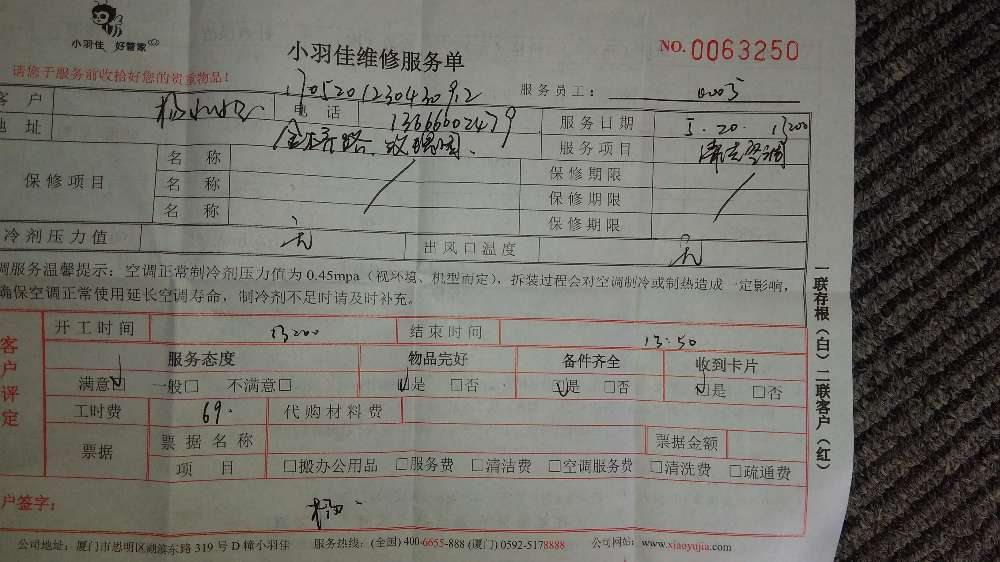 小羽佳 好管家
小羽佳维修服务单
NO. 0063250
请您于服务前收拾好您的贵重物品!
服务员工:
客户
电话 13666602479
地址
服务日期 5.20. 13:00
服务项目 清洗空调
保修项目
名称 保修期限
名称 保修期限
名称 保修期限
冷剂压力值 无 出风口温度 无
调服务温馨提示:空调正常制冷剂压力值为 0.45mpa(视环境、机型而定),拆装过程会对空调制冷或制热造成一定影响,
确保空调正常使用延长空调寿命,制冷剂不足时请及时补充。
客户评定
开工时间 13:00 结束时间 13:50
服务态度 物品完好 备件齐全 收到卡片
满意☑ 一般□ 不满意□ ☑是 □否 ☑是 □否 ☑是 □否
工时费 69. 代购材料费
票据 票据名称 票据金额
项目 □搬办公用品 □服务费 □清洁费 □空调服务费 □清洗费 □疏通费
户签字:
公司地址:厦门市思明区湖滨东路 319 号 D 幢小羽佳 服务热线:(全国) 400-6655-888 (厦门) 0592-5178888 公司网站:www.xiaoyujia.com
一联存根(白)二联客户(红)